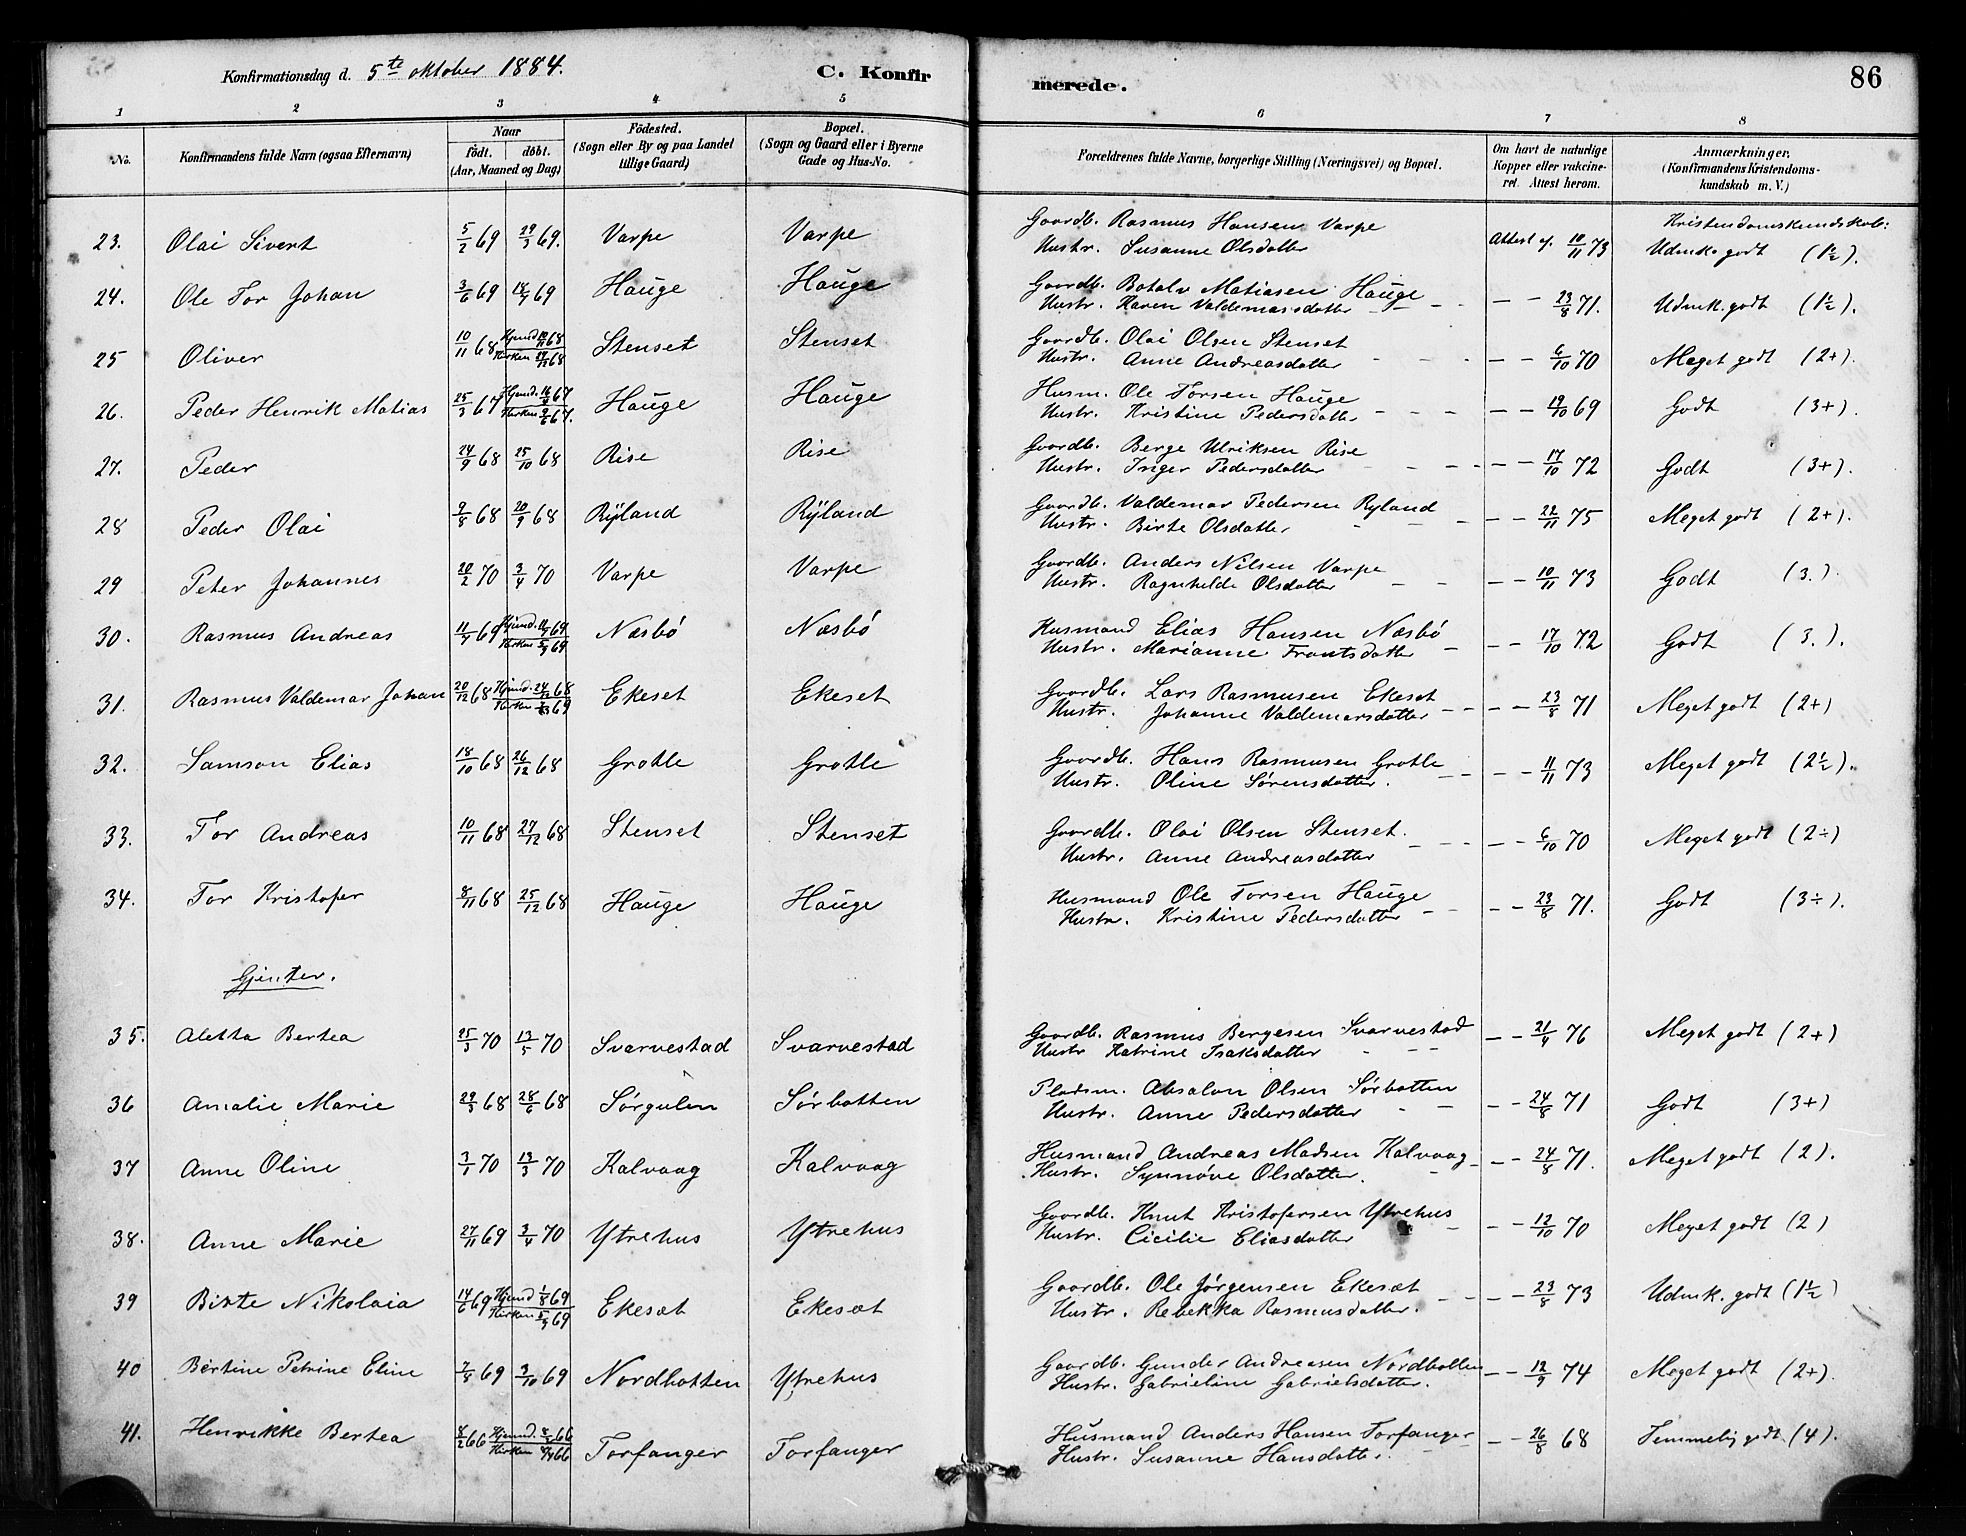 Konfirmationsdag d. 5te oktober 1884. C. Konfirmerede. 86
1 2 3 4 5 6 7 8
No. Konfirmandens fulde Navn (ogsaa Efternavn) Naar födt. döbt. (Aar, Maaned og Dag) Födested. (Sogn eller By og paa Landet tillige Gaard) Bopæl. (Sogn og Gaard eller i Byerne Gade og Hus-No. Forældrenes fulde Navne, borgerlige Stilling (Næringsvei) og Bopæl. Om havt de naturlige Kopper eller vakcineret. Attest herom. Anmærkninger, (Konfirmandens Kristendomskundskab m. V.)
Kristendomskundskab:
23. Olai Sivert 5/2 69 29/3 69. Varpe Varpe Gaardb. Rasmus Hansen Varpe Attest af 10/11 73 Udmk. godt (1½).
Hustr. Susanne Olsdatter
24. Ole Tor Johan 3/6 69 18/7 69 Hauge Hauge Gaardb. Botolv Matiasen Hauge - - 23/8 71. Udmk. godt (1½).
Hustr. Karen Valdemarsdatter
25 Oliver 10/11 68 Hjemd. 68 Kirken 68 Stenset Stenset Gaardb. Olai Olsen Stenset - - 6/10 70 Meget godt (2+).
Hustr. Anne Andreasdatter
26. Peder Henrik Matias 25/3 67 Hjemd. 67 Kirken 67. Hauge Hauge Husm. Ole Torsen Hauge - - 19/10 69 Godt (3+).
Hustr. Kristine Pedersdatter
27. Peder 24/9 68 25/10 68 Rise Rise Gaardb. Berge Ulriksen Rise - - 17/10 72 Godt (3+).
Hustr. Inger Pedersdatter
28 Peder Olai 9/8 68 20/9 68 Rÿland Rÿland Gaardb. Valdemar Pedersen Ryland - - 22/11 75 Meget godt (2+).
Hustr. Birte Olsdatter
29 Peter Johannes 20/2 70 3/4 70 Varpe Varpe Gaardb. Anders Nilsen Varpe - - 10/11 73 Godt (3.)
Hustr. Ragnhilde Olsdatter
30. Rasmus Andreas 11/7 69 Hjemd. 69 Kirken 69 Næsbö Næsbö Husmand Elias Hansen Næsbö - - 17/10 72 Godt (3.).
Hustr. Marianne Frantsdatter
31. Rasmus Valdemar Johan 20/12 68 Hjemd. 24/12 68 Kirken 69 Ekeset Ekeset Gaardb. Lars Rasmusen Ekeset - - 23/8 71 Meget godt (2+)
Hustr. Johanne Valdemarsdatter
32. Samson Elias 18/10 68 26/12 68 Grotle Grotle Gaardb. Hans Rasmusen Grotle - - 11/11 73 Meget godt (2½).
Hustr. Oline Sørensdatter.
33. Tor Andreas 10/11 68 27/12 68 Stenset Stenset Gaardb. Olai Olsen Stenset. - - 6/10 70 Meget godt (2÷)
Hustr. Anne Andreasdatter
34. Tor Kristofer 8/11 68 25/12 68 Hauge Hauge Husmand Ole Torsen Hauge - - 23/8 71. Godt (3÷).
Hustr. Kristine Pedersdatter
Gjenter.
35. Aletta Bertea 25/3 70 13/5 70 Svarvestad Svarvestad Gaardb. Rasmus Bergesen Svarvestad - - 21/4 76 Meget godt (2+)
Hustr Katrine Isaksdatter
36 Amalie Marie 29/3 68 28/6 68 Sørgulen Sørbotten Pladsm. Absalon Olsen Sørbotten - - 24/8 71 Godt (3+)
Hustr. Anne Pedersdatter
37 Anne Oline 3/1 70 13/3 70 Kalvaag Kalvaag Husmand Andreas Madsen Kalvaag - - 24/8 71. Meget godt (2).
Hustr. Synnøve Olsdatter.
38. Anne Marie 27/11 69 3/4 70 Ytrehus Ytrehus Gaardb. Knut Kristofersen Ytrehus - - 12/10 70 Meget godt (2)
Hustr. Cicilie Eliasdatter
39 Birte Nikolaia 14/6 69 Hjemd 1/8 69 Kirken 5/9 69 Ekesæt Ekesæt Gaardb. Ole Jørgensen Ekesæt - - 23/8 73 Udmk. godt (1½)
Hustr. Rebekka Rasmusdatter.
40 Bertine Petrine Eline 7/8 69 3/10 69 Nordbotten Ytrehus Gaardb. Gunder Andreasen Nordbotten - - 12/9 74 Meget godt (2+).
Hustr. Gabrieline Gabrielsdatter.
41. Henrikke Bertea 8/2 66 Hjemd. 66 Kirken 66 Torfanger Torfanger Husmand Anders Hansen Torfanger - - 26/8 68 Temmelig godt (4).
Hustr. Susanne Hansdatter.